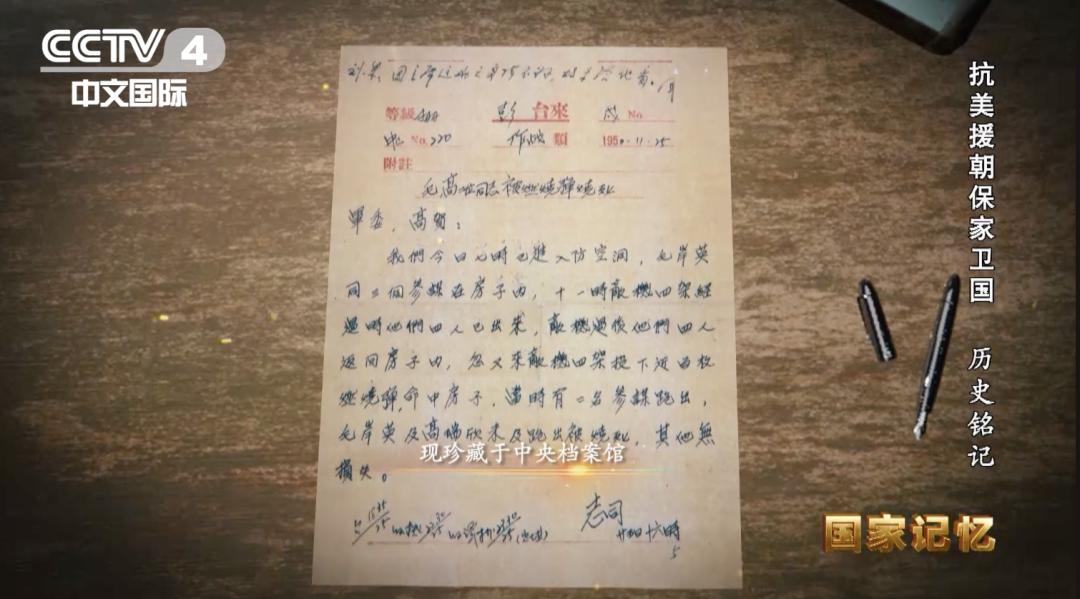 CCTV 4
中文国际
等級 彭 台來 No
No. 220 作 類 1950·11·25
附註
毛高二同志被燃燒彈燒死
軍委，高賀：
我們今日七時已進入防空洞，毛岸英
同三個參謀在房子內，十一時敵機四架經
過時他們四人已出來，敵機過後他們四人
返回房子內，忽又來敵機四架投下近百枚
燃燒彈，命中房子，當時有二名參謀跑出，
毛岸英及高瑞欣未及跑出被燒死，其他無
損失。
志司
十六時
现珍藏于中央档案馆
抗美援朝保家卫国 历史铭记
国家记忆